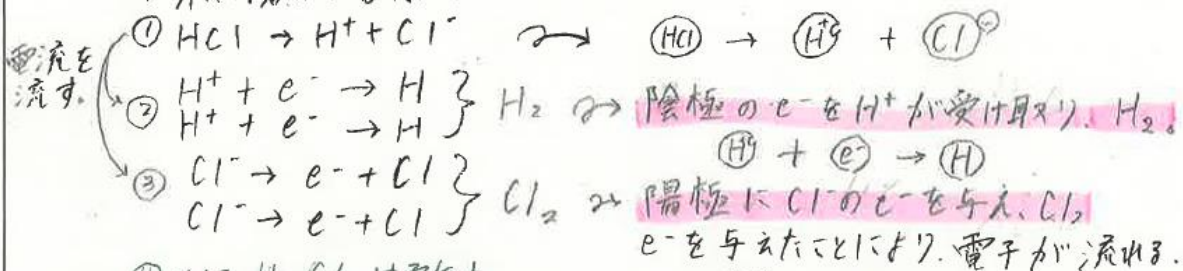 ① HCl → H⁺ + Cl⁻ ⤳ HCl → H⁺ + Cl⁻
電流を
流す。
② H⁺ + e⁻ → H
H⁺ + e⁻ → H
} H₂ ⤳ 陰極のe⁻をH⁺が受け取り、H₂。
H⁺ + e⁻ → H
③ Cl⁻ → e⁻ + Cl
Cl⁻ → e⁻ + Cl
} Cl₂ ⤳ 陽極にCl⁻のe⁻を与え、Cl₂
e⁻を与えたことにより、電子が流れる.